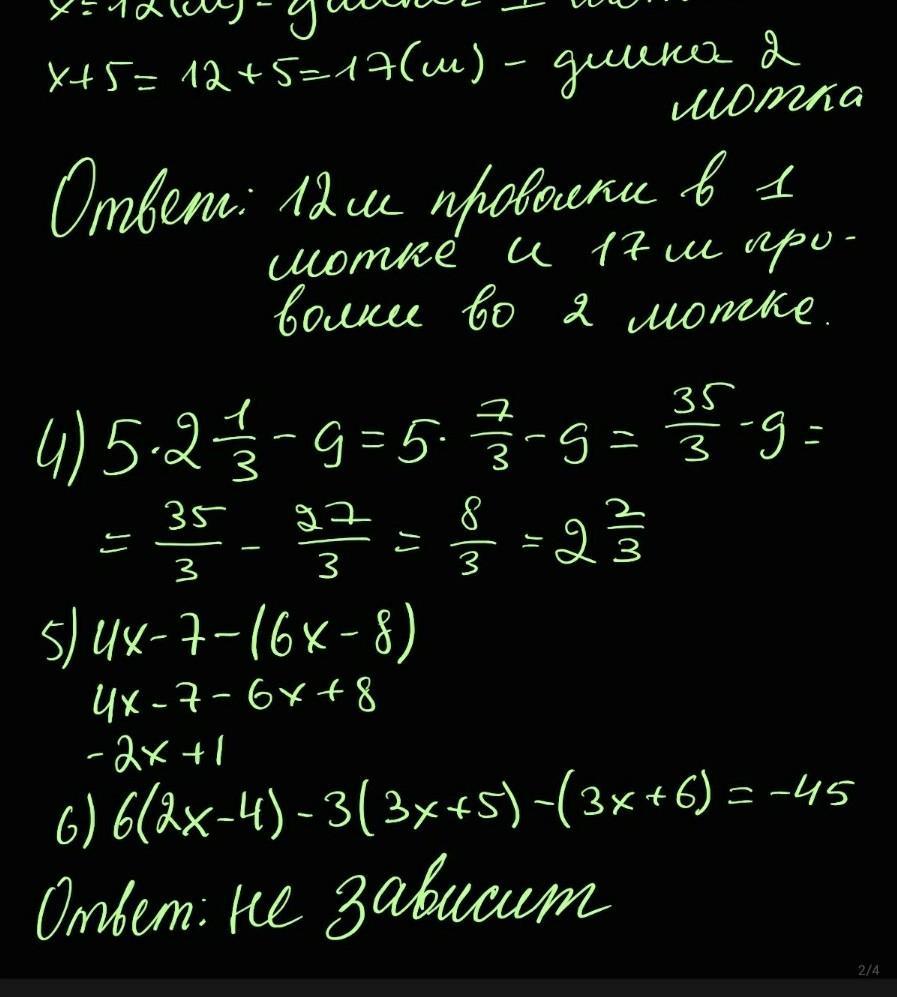 x=12(м) - длина 1 мот
x+5= 12+5=17(м) - длинка 2
мотка
Ответ: 12м проволки в 1
мотке и 17м про-
волки во 2 мотке.
4) 5·2 1/3 - 9 = 5· 7/3 - 9 = 35/3 - 9 =
= 35/3 - 27/3 = 8/3 = 2 2/3
5) 4x-7-(6x-8)
4x-7-6x+8
-2x+1
6) 6(2x-4)-3(3x+5)-(3x+6)=-45
Ответ: не зависит
2/4